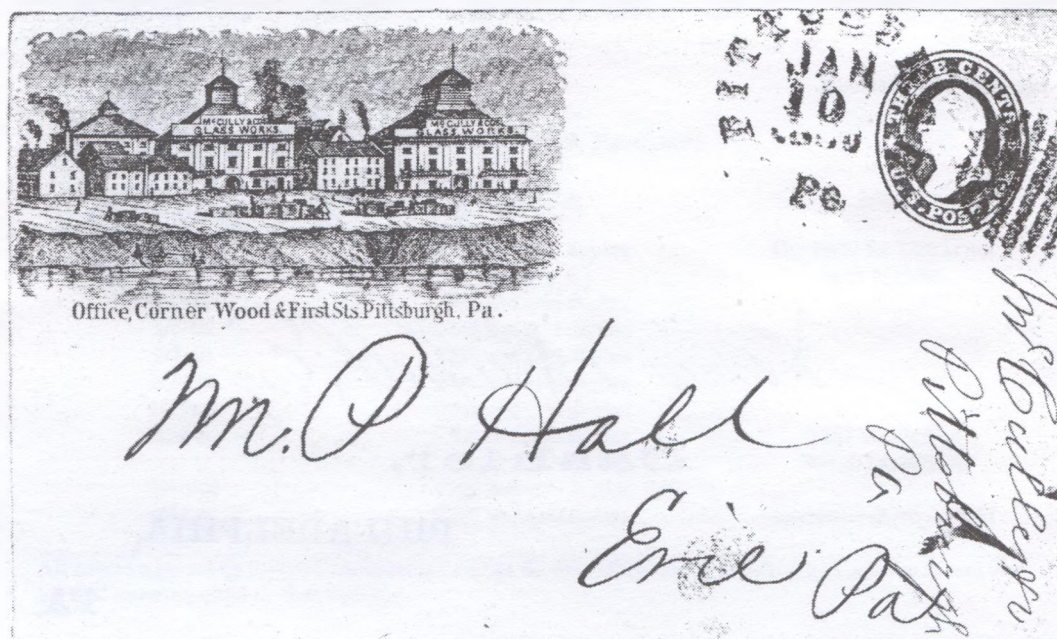 McCULLY & CO
GLASS WORKS.
McCULLY & CO
GLASS WORKS.
Office, Corner Wood & First Sts. Pittsburgh, Pa.
JAN
10
Pa
THREE CENTS
U.S. POSTAGE
Mr. P Hall
Erie Pa
Pittsburgh
Pa